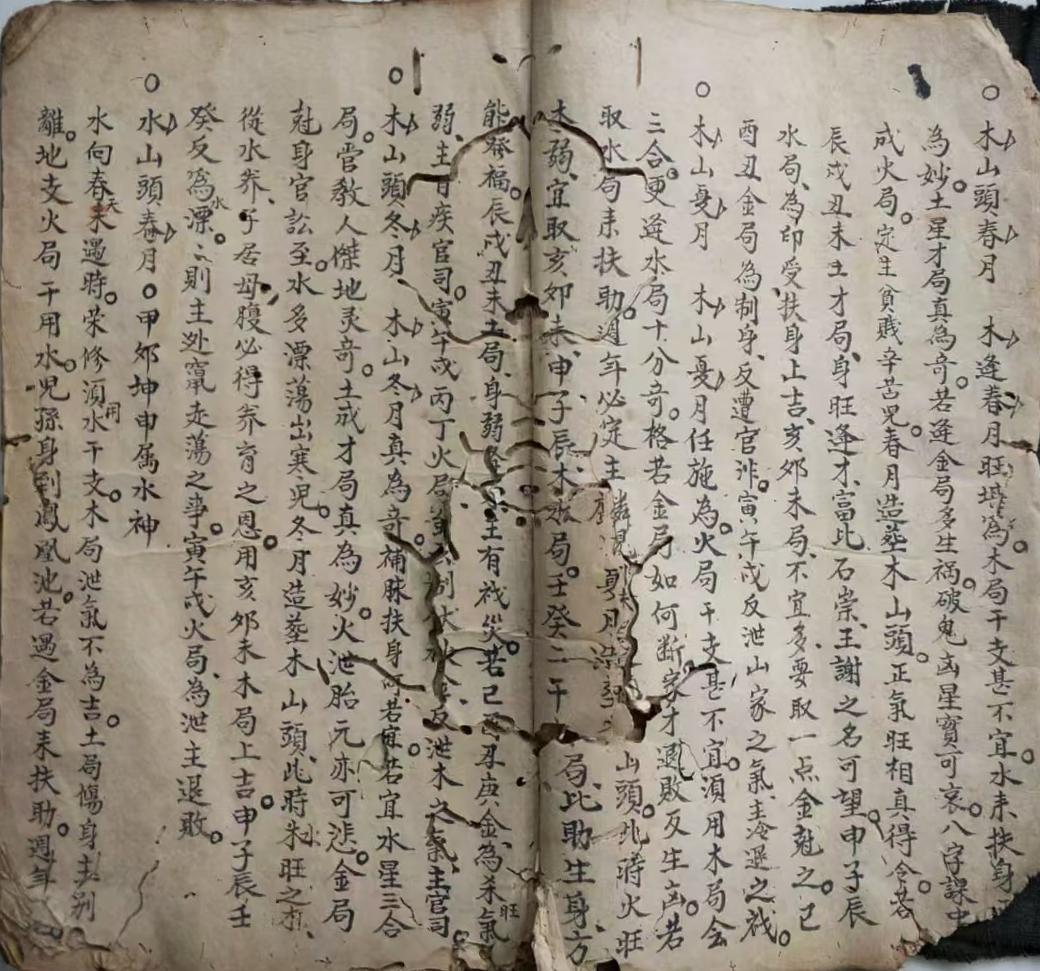 木山頭春月 木逢春月旺墳為木局干支甚不宜水来扶身
為妙土星才局真為奇若逢金局多生禍破鬼凶星實可哀八字課中
成火局定生貧賤辛苦児春月造塟木山頭正氣旺相真得令若
辰戌丑未土才局身旺逢才富此石崇王謝之名可望申子辰
水局為印受扶身上吉亥夘未局不宜多要取一点金尅之巳
酉丑金局為制身反遭官非寅午戌反泄山家之氣主冷退之戝
木山夏月 木山夏月任施為火局干支甚不宜須用木局会
三合更逢水局十分奇格若金局如何断家才退敗反生凶若
取水局耒扶助週年必定主 夏月 山頭此時火旺
木弱宜取亥夘未申子辰木 局壬癸二干 局此助生身方
能發福辰戌丑未土局身弱 主有戝災若巳酉丑庚金為杀氣旺
弱主有疾官司寅午戌丙丁火局 反泄木之氣主官司
木山頭冬月 木山冬月真為奇補脉扶身 若宜水星三合
局管教人傑地灵奇土戒才局真為妙火泄胎元亦可悲金局
尅身官訟至水多漂荡出寒児冬月造塟木山頭此時 旺之木
從水养子居母腹必得养育之恩用亥夘未木局上吉申子辰壬
癸反為漂水漂則主逃竄走荡之事寅午戌火局為泄主退敗
水山頭春月 甲夘坤申属水神
水向春天耒遇時荣修須用水干支木局泄氣不為吉土局傷身主别
離地支火局干用水児孫身到鳳凰池若遇金局耒扶助週年